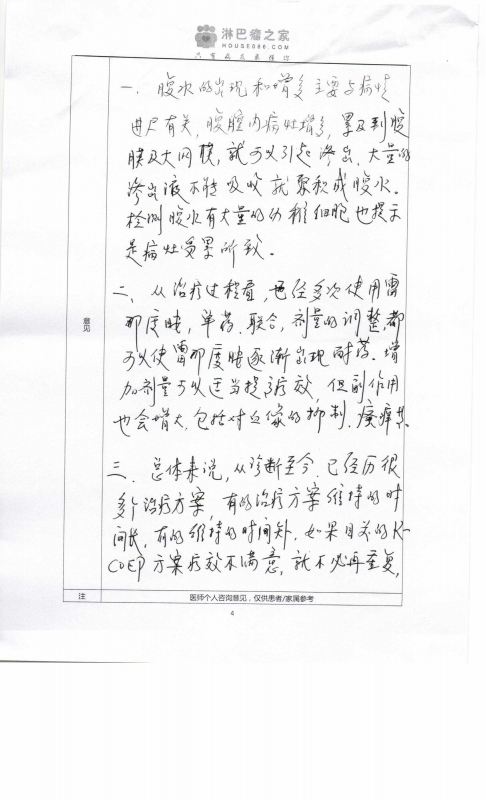 淋巴瘤之家
HOUSE086.COM
只有病友最懂你
一、腹水的出现和增多主要与病情
进展有关，腹腔内病灶增多，累及到腹
膜及大网膜，就可以引起渗出，大量的
渗出液不能吸收就聚积成腹水。
检测腹水有大量的幼稚细胞也提示
是病灶受累所致。
意见
二、从治疗过程看，已经多次使用雷
那度胺，单药、联合，剂量的调整都
可以使雷那度胺逐渐出现耐药。增
加剂量可以适当提高疗效，但副作用
也会增大，包括对血象的抑制、瘙痒其
三、总体来说，从诊断至今，已经历很
多个治疗方案，有的治疗方案维持的时
间长，有的维持的时间短，如果目前的K-
COEP方案疗效不满意，就不必再重复，
注
医师个人咨询意见，仅供患者/家属参考
4